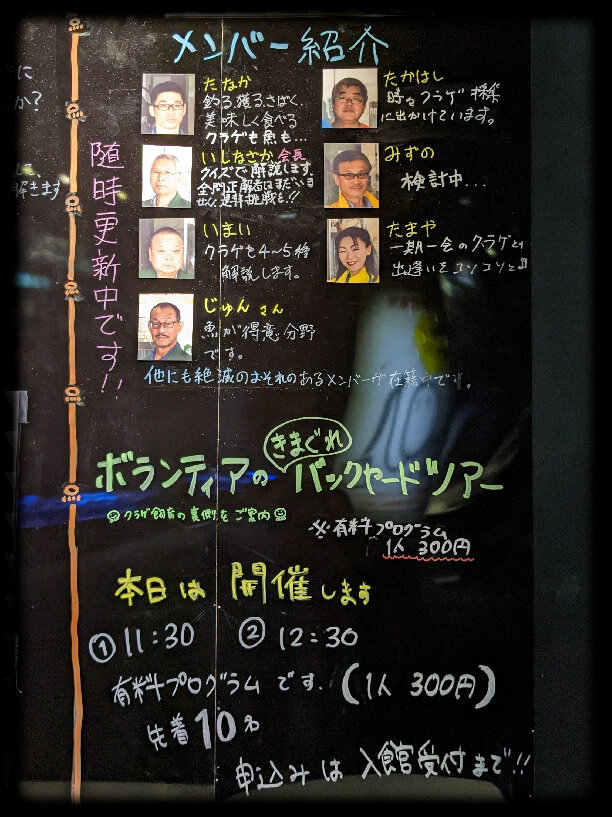 に
か?
解きます
メンバー紹介
随時更新中です!!
たなか
釣る、獲る、さばく、
美味しく食べる
クラゲも魚も…
いしなざか 会長
クイズで解説します。
全問正解者はまだいま
せん。是非挑戦を!!
いまい
クラゲを4〜5種
解説します。
じゅん さん
魚が得意分野
です。
たかはし
時々クラゲ採集
に出かけています。
みずの
検討中...
たまや
一期一会のクラゲとの
出逢いをコソコソと
他にも絶滅のおそれのあるメンバーが在籍中です。
きまぐれ
ボランティアの バックヤードツアー
クラゲ飼育の裏側をご案内
※有料プログラム
1人 300円
本日は 開催します
① 11:30 ② 12:30
有料プログラムです. (1人 300円)
先着 10名
申込みは 入館受付まで!!